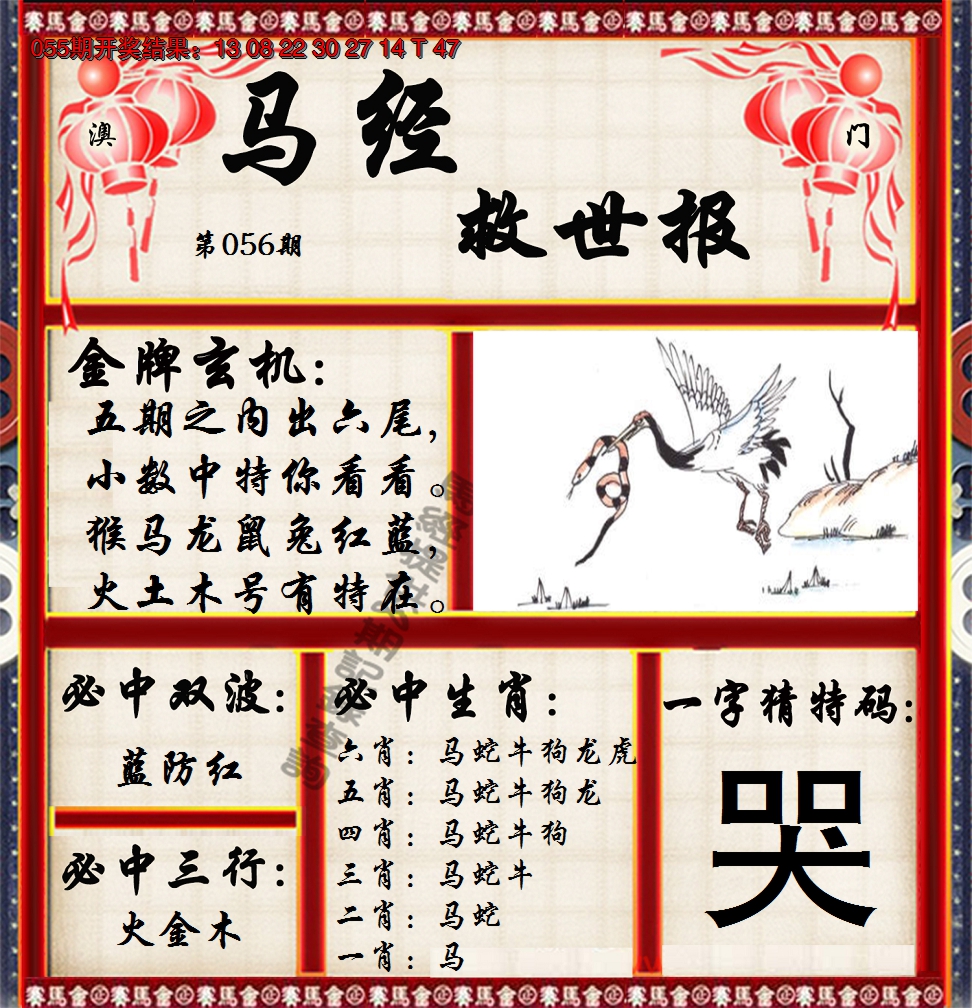 赛馬會
055期开奖结果：13 08 22 30 27 14 T 47
澳
门
马经
救世报
第056期
金牌玄机：
五期之内出六尾，
小数中特你看看。
猴马龙鼠兔红蓝，
火土木号有特在。
必中双波：
蓝防红
必中三行：
火金木
必中生肖：
六肖：马蛇牛狗龙虎
五肖：马蛇牛狗龙
四肖：马蛇牛狗
三肖：马蛇牛
二肖：马蛇
一肖：马
一字猜特码：
哭
赛馬會